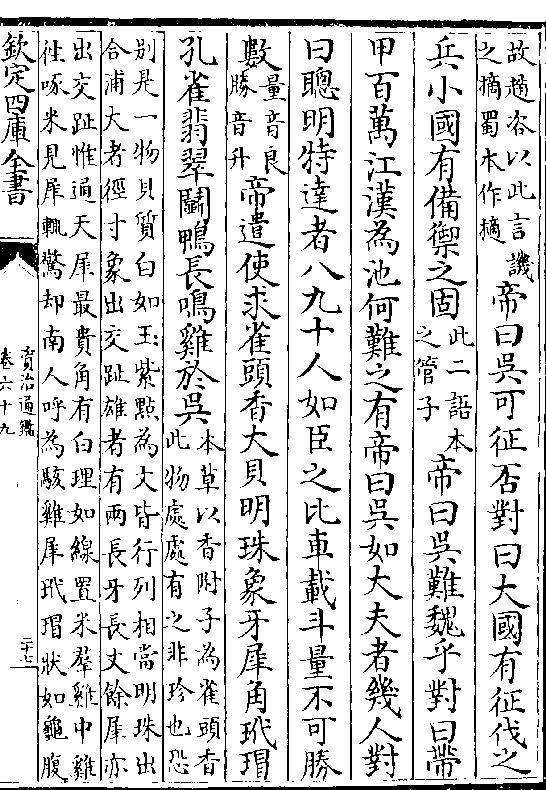 故趙咨以此言譏
之摘蜀水作擿
帝曰吳可征否對曰大國有征伐之
兵小國有備禦之固
此二語本
之管子
帝曰吳難魏乎對曰帶
甲百萬江漢為池何難之有帝曰吳如大夫者幾人對
曰聰明特達者八九十人如臣之比車載斗量不可勝
數
量音良
勝音升
帝遣使求雀頭香大貝明珠象牙犀角玳瑁
孔雀翡翠鬭鴨長鳴雞於吳
本草以香附子為雀頭香
此物處處有之非珍也恐
別是一物貝質白如玉紫點為文皆行列相當明珠出
合浦大者徑寸象出交趾雄者有兩長牙長丈餘犀亦
出交趾惟通天犀最貴角有白理如線置米羣雞中雞
往啄米見犀輒驚却南人呼為駭雞犀玳瑁狀如龜腹
欽定四庫全書
資治通鑑
卷六十九
二十七